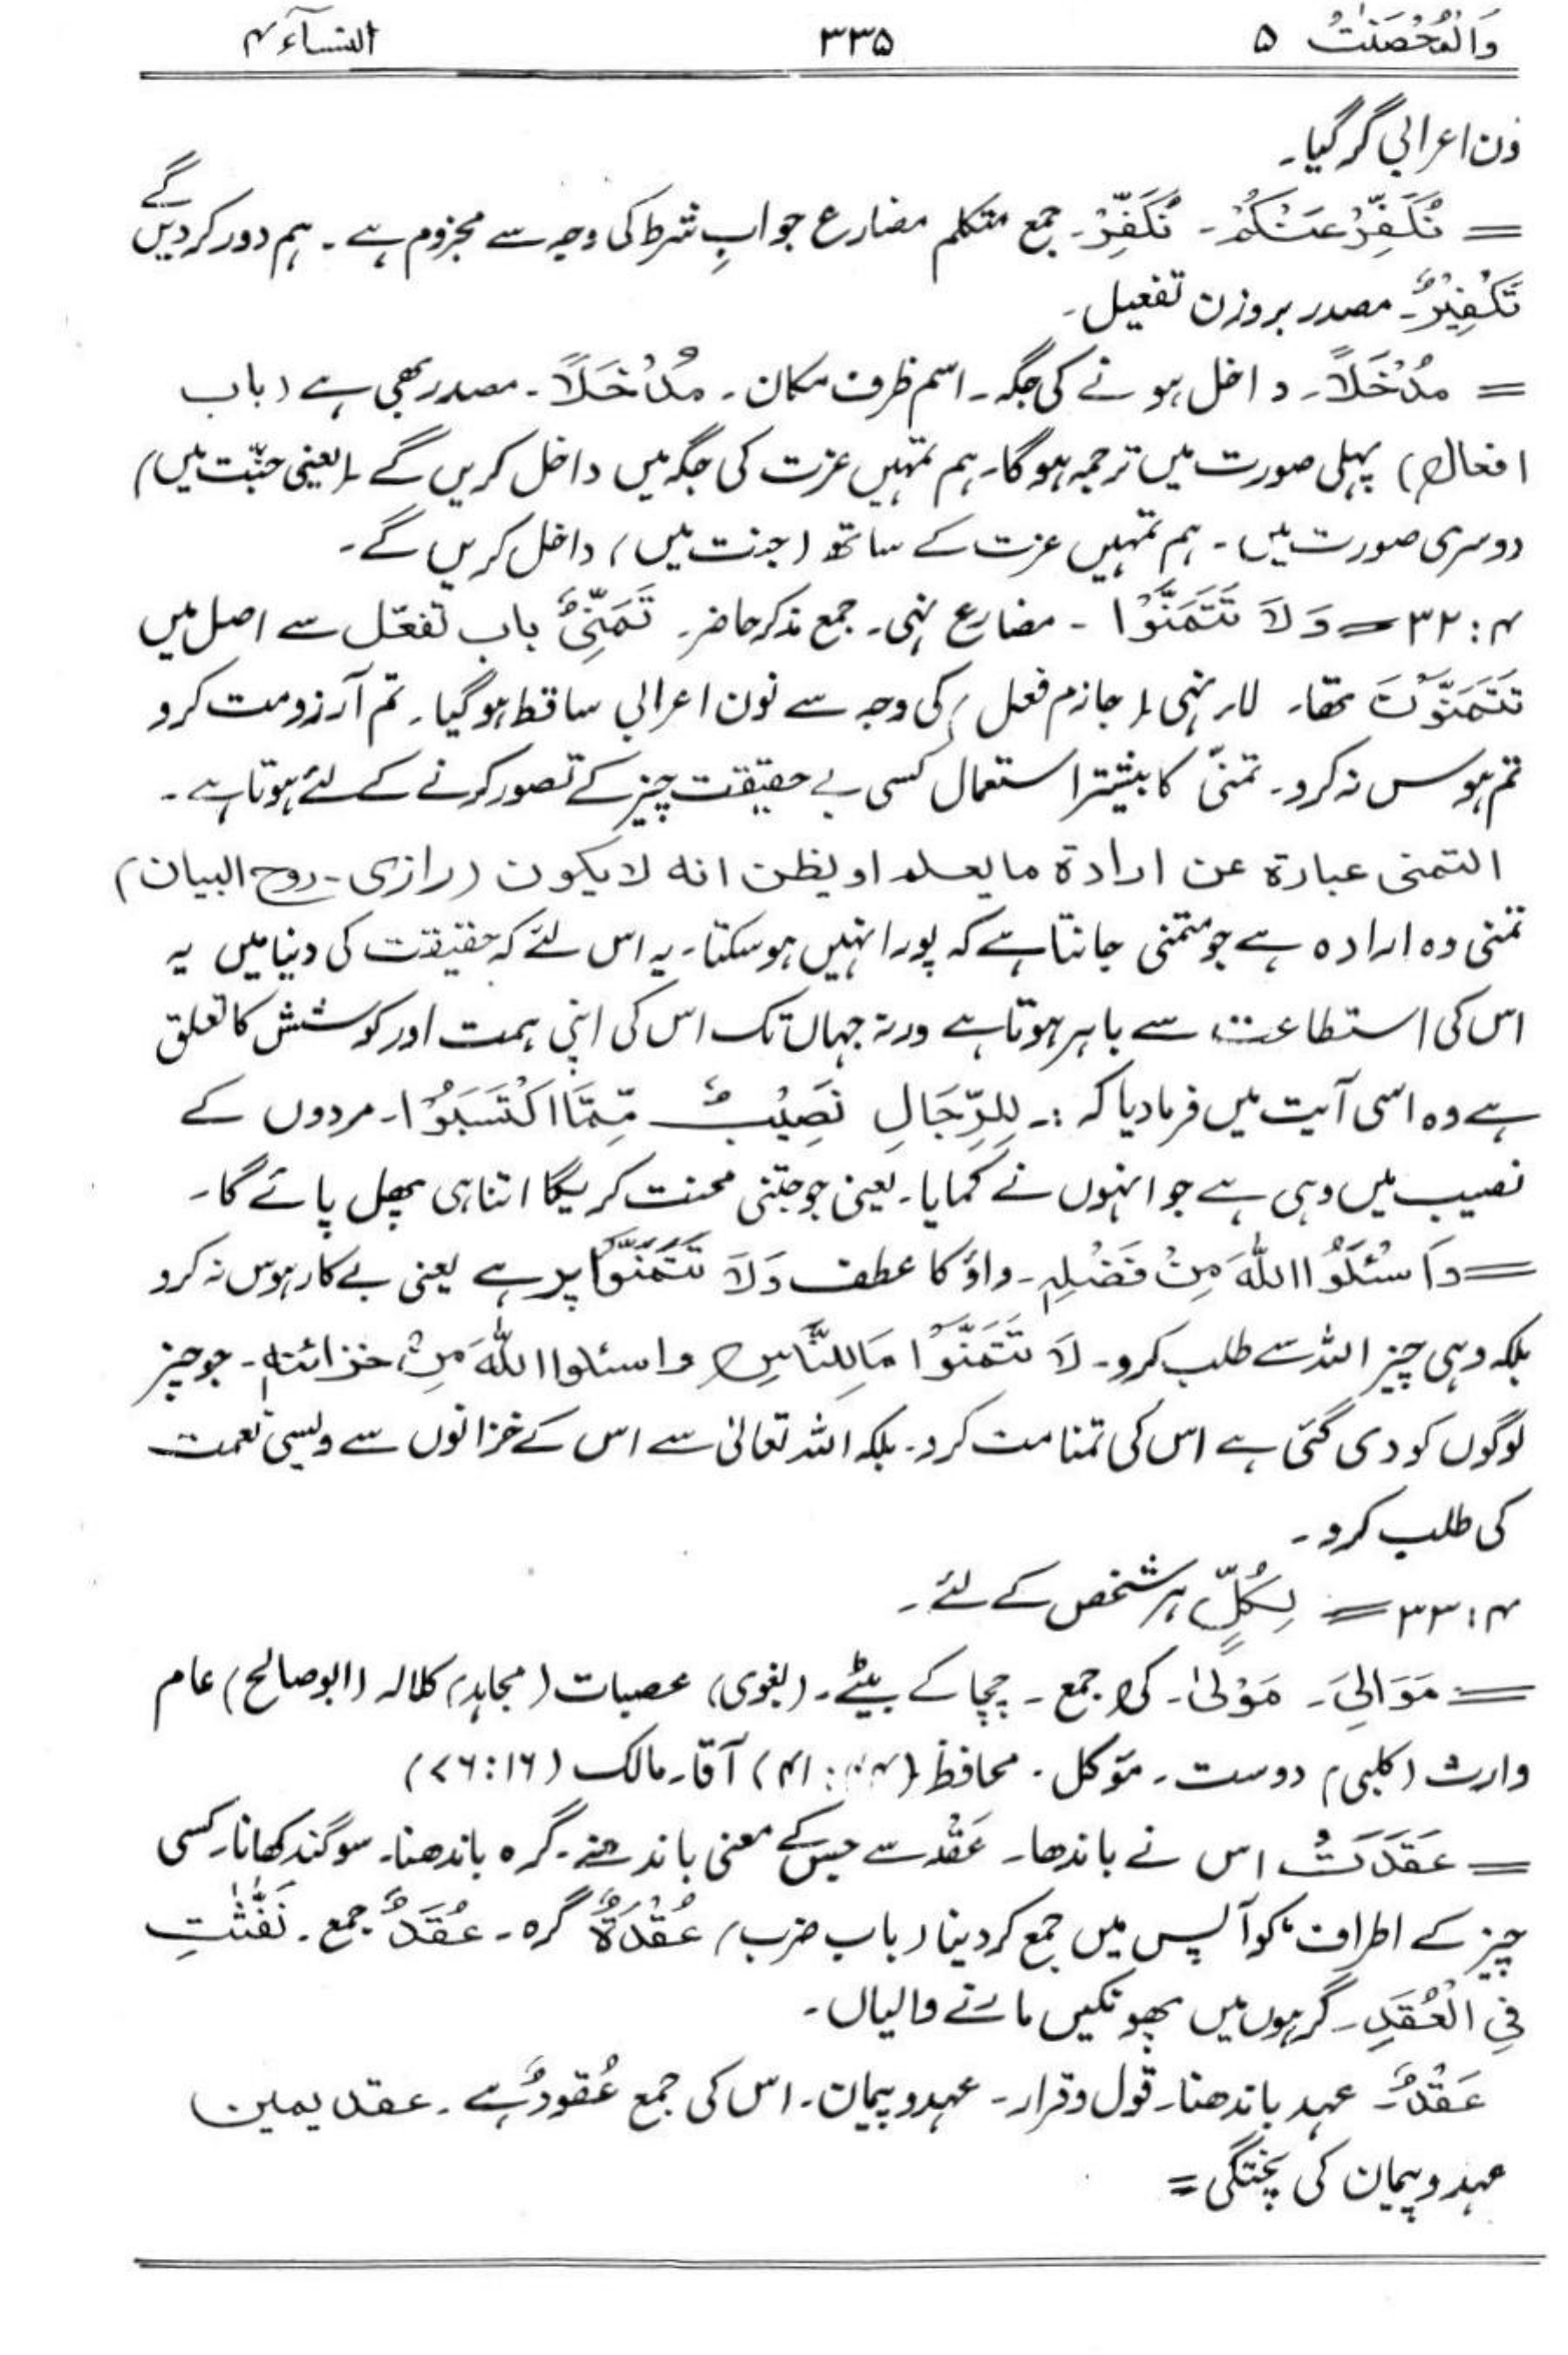 وَالْمُحْصَنٰتُ ۵ ۳۳۵ النسآء ۴
نون اعرابی گر گیا۔
= نُكَفِّرْ عَنْكُمْ۔ نُكَفِّرْ۔ جمع متکلم مضارع جوابِ شرط کی وجہ سے مجزوم ہے۔ ہم دور کردیں گے
تَكْفِيْرٌ۔ مصدر بروزن تفعیل۔
= مُدْخَلًا۔ داخل ہونے کی جگہ۔ اسم ظرف مکان۔ مُدْخَلًا۔ مصدر بھی ہے (باب
افعال) پہلی صورت میں ترجمہ ہوگا۔ ہم تمہیں عزت کی جگہ میں داخل کریں گے (یعنی جنّت میں)
دوسری صورت میں۔ ہم تمہیں عزت کے ساتھ (جنت میں) داخل کریں گے۔
۴:۳۲ = وَلَا تَتَمَنَّوْا ۔ مضارع نہی۔ جمع مذکر حاضر۔ تَمَنِّیٌ باب تفعّل سے اصل میں
تَتَمَنَّوْنَ تھا۔ لاء نہی (جازم فعل) کی وجہ سے نون اعرابی ساقط ہوگیا۔ تم آرزو مت کرو
تم ہوس نہ کرو۔ تمنّی کا بیشتر استعمال کسی بے حقیقت چیز کے تصور کرنے کے لئے ہوتا ہے۔
التمنی عبارۃ عن ارادۃ ما یعلم او یظن انہ لا یکون (رازی۔ روح البیان)
تمنی وہ ارادہ ہے جو متمنی جانتا ہے کہ پورا نہیں ہوسکتا۔ یہ اس لئے کہ حقیقت کی دنیا میں یہ
اس کی استطاعت سے باہر ہوتا ہے ورنہ جہاں تک اس کی اپنی ہمت اور کوشش کا تعلق
ہے وہ اسی آیت میں فرمادیا کہ :۔ لِلرِّجَالِ نَصِيْبٌ مِّمَّا اكْتَسَبُوْا۔ مردوں کے
نصیب میں وہی ہے جو انہوں نے کمایا۔ یعنی جو جتنی محنت کریگا اتنا ہی پھل پائے گا۔
= وَاسْئَلُوا اللّٰهَ مِنْ فَضْلِهٖ۔ واؤ کا عطف وَلَا تَتَمَنَّوْا پر ہے یعنی بے کار ہوس نہ کرو
بلکہ وہی چیز اللہ سے طلب کرو۔ لَا تَتَمَنَّوْا مَا لِلنَّاسِ واسئلوا اللّٰهَ مِنْ خزائنهٖ۔ جو چیز
لوگوں کو دی گئی ہے اس کی تمنا مت کرو۔ بلکہ اللہ تعالیٰ سے اس کے خزانوں سے ویسی نعمت
کی طلب کرو۔
۴:۳۳ = لِكُلٍّ ہر شخص کے لئے۔
= مَوَالِیَ۔ مَوْلیٰ۔ کی جمع۔ چچا کے بیٹے۔ (بغوی) عصبات (مجاہد) کلالہ (ابو صالح) عام
وارث (کلبی) دوست۔ مؤکل۔ محافظ (۴۴:۴۱) آقا۔ مالک (۷۶:۱۶)
= عَقَدَتْ اس نے باندھا۔ عَقْد سے جس کے معنی باندھنے۔ گرہ باندھنا۔ سوگند کھانا۔ کسی
چیز کے اطراف کو آپس میں جمع کر دینا (باب ضرب) عُقْدَةٌ گرہ۔ عُقَدٌ جمع۔ نَفّٰثٰتِ
فِی الْعُقَدِ۔ گرہوں میں پھونکیں مارنے والیاں۔
عَقْدٌ۔ عہد باندھنا۔ قول و قرار۔ عہد و پیمان۔ اس کی جمع عُقودٌ ہے۔ عقد یمین
عہد و پیمان کی پختگی =